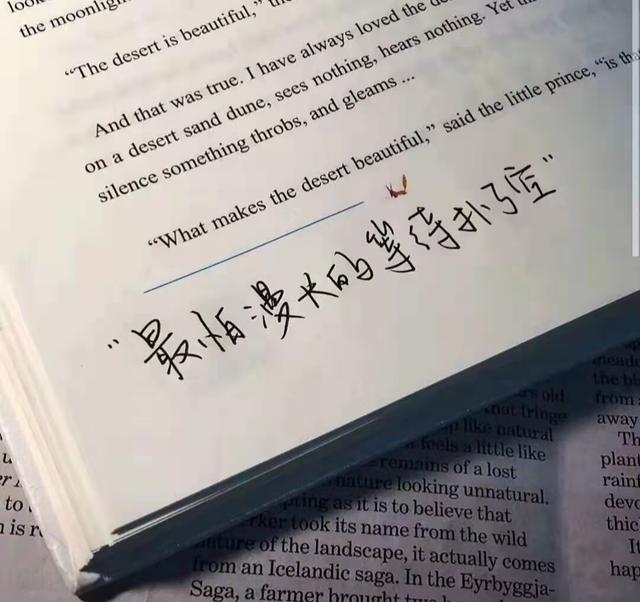 the moonlig
"The desert is beautiful,"
And that was true. I have always loved the de
on a desert sand dune, sees nothing, hears nothing. Yet
silence something throbs, and gleams ...
"What makes the desert beautiful," said the little prince, "is tha
"最怕漫长的等待扑了空"
old
that fringe
like natural
feels a little like
remains of a lost
nature looking unnatural.
pting as it is to believe that
rker took its name from the wild
nature of the landscape, it actually comes
from an Icelandic saga. In the Eyrbyggja-
Saga, a farmer brought
the bl
from
away
Th
plant
rainf
devo
thic
It
hap
to
is r